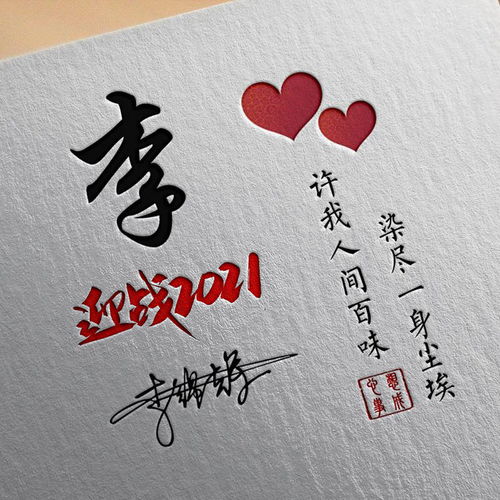 李
迎战2021
许我人间百味
染尽一身尘埃
心想事成